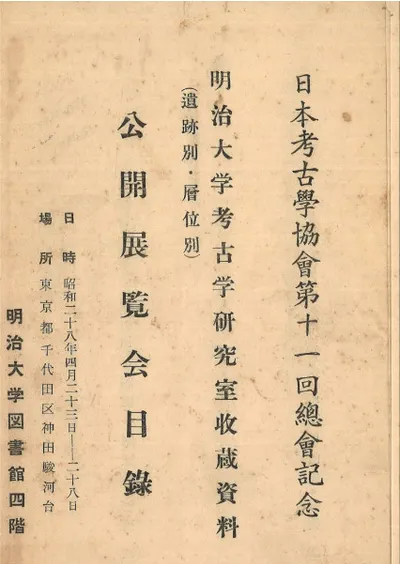 日本考古學協會第十一回總會記念
明治大学考古学研究室収蔵資料
(遺跡別・層位別)
公開展覧会目錄
日時 昭和二十八年四月二十三日——二十八日
場所 東京都千代田区神田駿河台
明治大学図書館四階